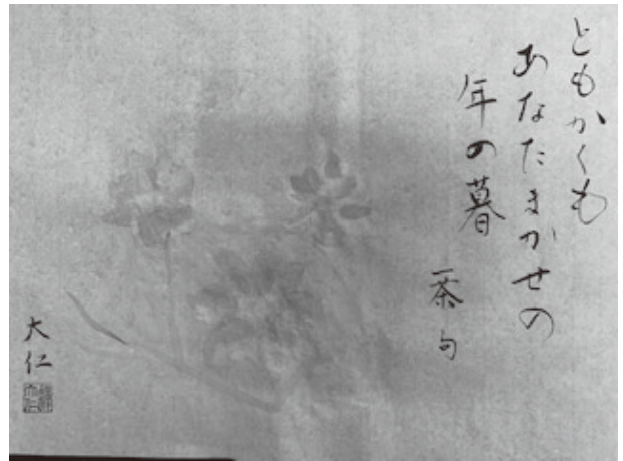 ともかくも
あなたまかせの
年の暮
一茶句
大仁